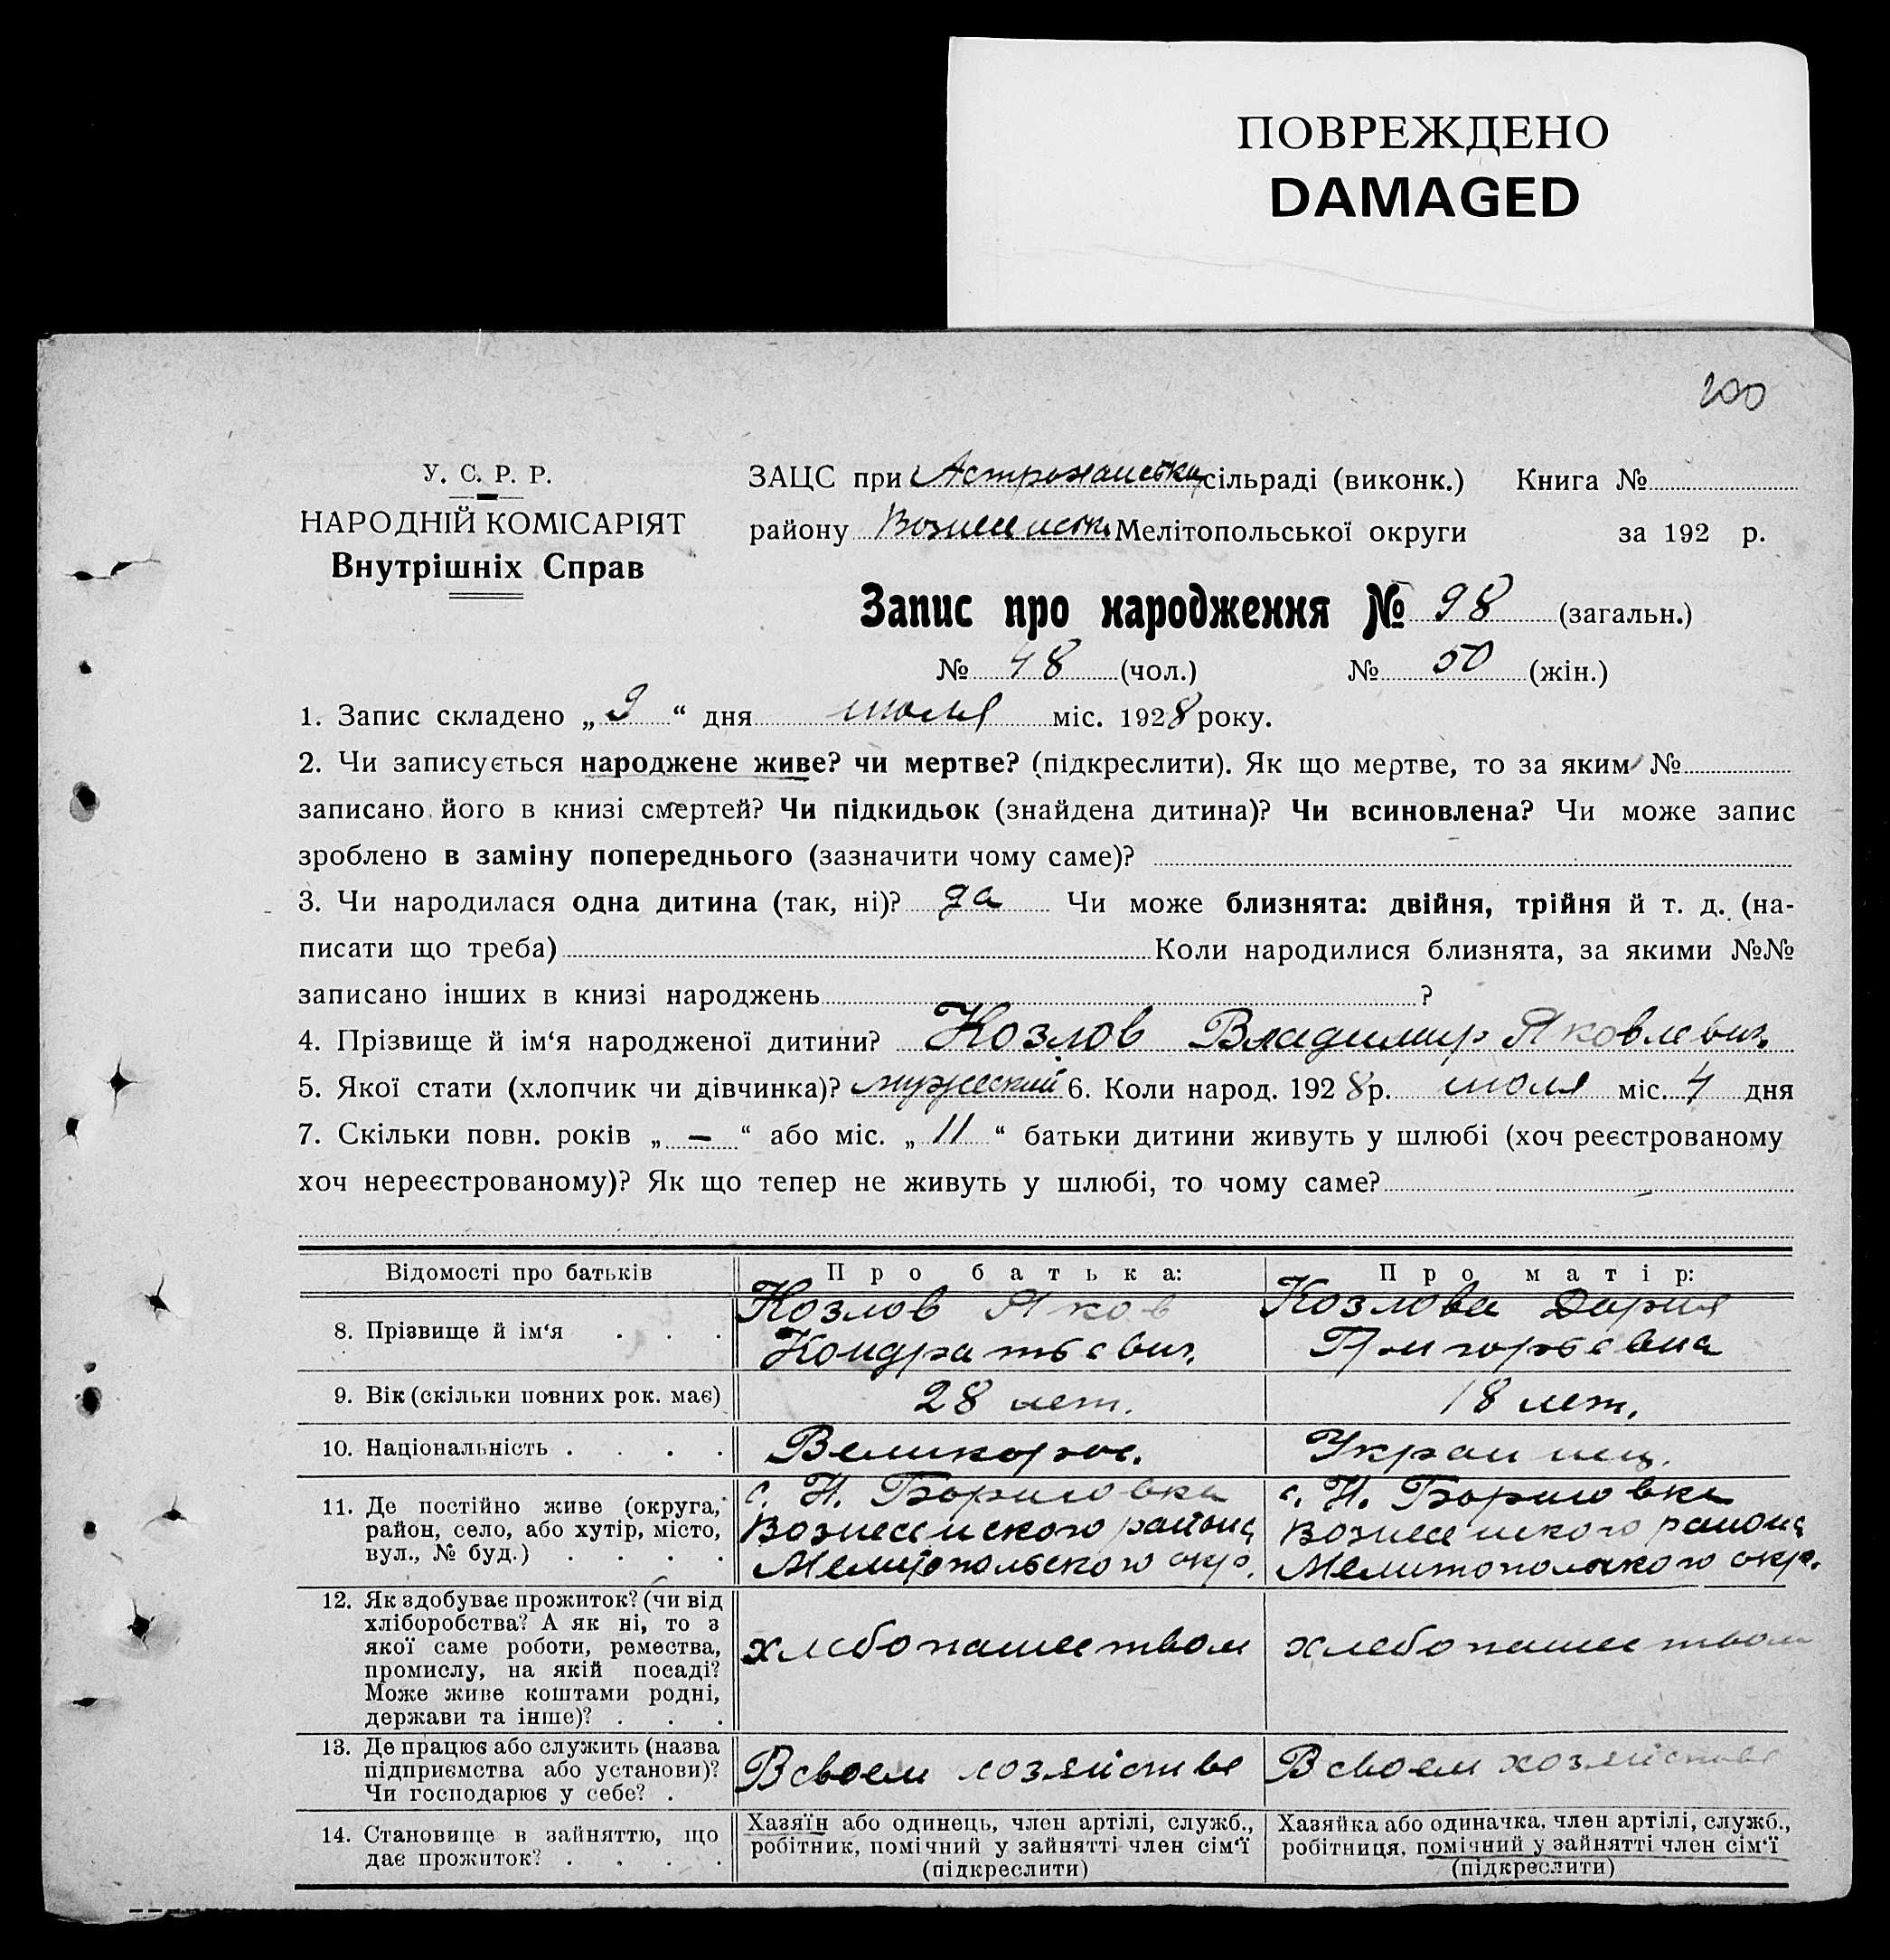 ПОВРЕЖДЕНО
DAMAGED
200
У. С. Р. Р.
НАРОДНІЙ КОМІСАРІЯТ
Внутрішніх Справ
ЗАЦС при сільраді (виконк.) Книга №
району Мелітопольської округи за 192 р.
Запис про народження № 98 (загальн.)
№ 48 (чол.) № 50 (жін.)
1. Запис складено „ 9 “ дня июля міс. 1928 року.
2. Чи записується народжене живе? чи мертве? (підкреслити). Як що мертве, то за яким №
записано його в книзі смертей? Чи підкидьок (знайдена дитина)? Чи всиновлена? Чи може запис
зроблено в заміну попереднього (зазначити чому саме)?
3. Чи народилася одна дитина (так, ні)? да Чи може близнята: двійня, трійня й т. д. (на-
писати що треба) Коли народилися близнята, за якими №№
записано інших в книзі народжень ?
4. Прізвище й ім‘я народженої дитини? Козлов Владимир Яковлевич.
5. Якої стати (хлопчик чи дівчинка)? мужеский 6. Коли народ. 1928 р. июля міс. 4 дня
7. Скільки повн. років „ — “ або міс. „ 11 “ батьки дитини живуть у шлюбі (хоч реєстрованому
хоч нереєстрованому)? Як що тепер не живуть у шлюбі, то чому саме?
Відомості про батьків
Про батька:
Про матір:
8. Прізвище й ім‘я . . .
Козлов Яков
Кондратьевич.
Козлова Дария
Григорьевна
9. Вік (скільки повних рок. має)
28 лет.
18 лет.
10. Національність . . . .
Великорос.
Украинц.
11. Де постійно живе (округа,
район, село, або хутір, місто,
вул., № буд.) . . . .
с. Н. Борисовка
Вознесенского района
Мелитопольского окр.
с. Н. Борисовка
Вознесенского района
Мелитопольского окр.
12. Як здобуває прожиток? (чи від
хліборобства? А як ні, то з
якої саме роботи, ремества,
промислу, на якій посаді?
Може живе коштами родні,
держави та інше)? . . .
хлебопашеством
хлебопашеством
13. Де працює або служить (назва
підприємства або установи)?
Чи господарює у себе? .
В своем хозяйстве
В своем хозяйстве
14. Становище в зайняттю, що
дає прожиток? . . . .
Хазяїн або одинець, член артілі, служб.,
робітник, помічний у зайнятті член сім‘ї
(підкреслити)
Хазяйка або одиначка, член артілі, служб.,
робітниця, помічний у зайнятті член сім‘ї
(підкреслити)